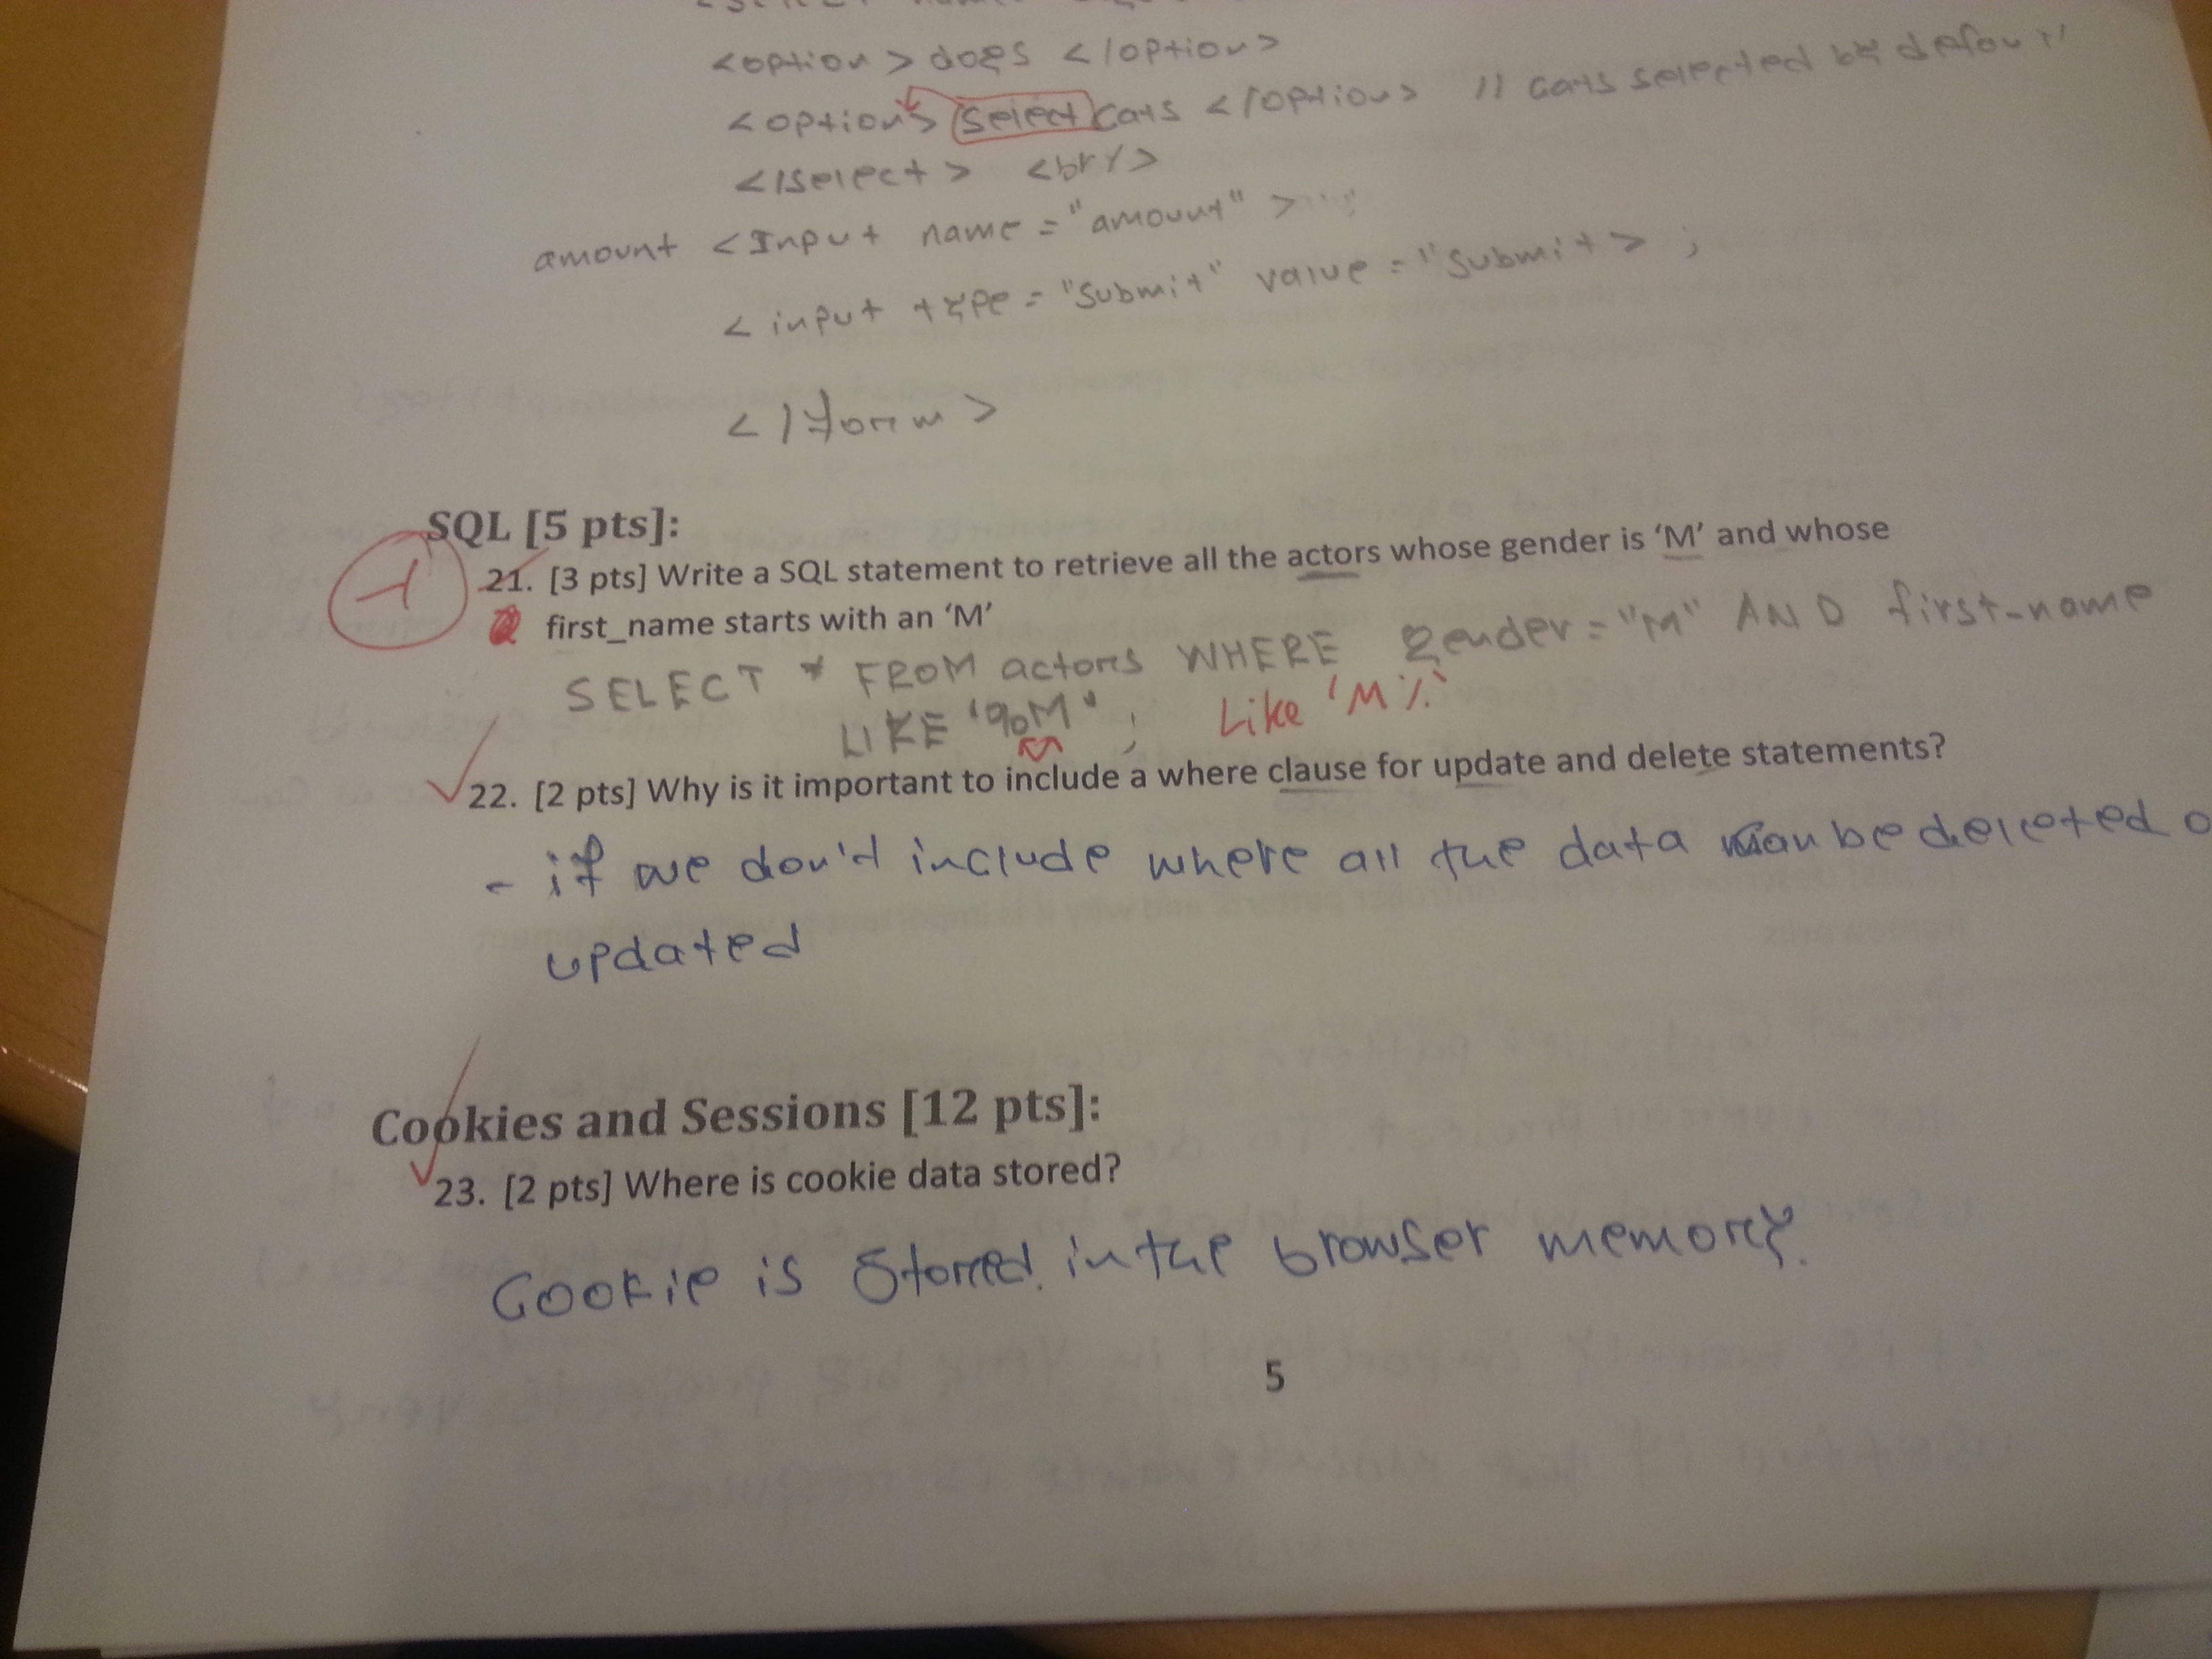 <option> dogs </option>
<option> select cats </option> // cats selected by defaul
</select> <br/>
amount <Input name = "amount" >
<input type = "submit" value = "submit > ;
</form>
SQL [5 pts]:
-1
21. [3 pts] Write a SQL statement to retrieve all the actors whose gender is ‘M’ and whose
first_name starts with an ‘M’
SELECT * FROM actors WHERE gender = "M" AND first_name
LIKE '%M' ; Like 'M%'
22. [2 pts] Why is it important to include a where clause for update and delete statements?
- if we don't include where all the data can be deleted o
updated
Cookies and Sessions [12 pts]:
23. [2 pts] Where is cookie data stored?
Cookie is stored in the browser memory.
5